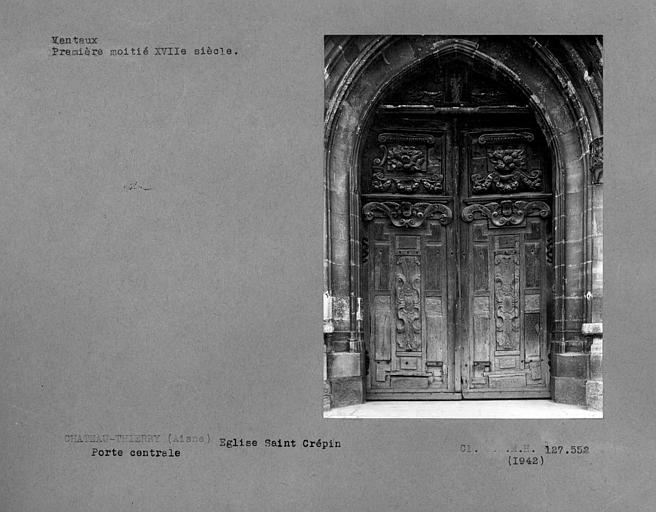 Vantaux
Première moitié XVIIe siècle.
CHATEAU-THIERRY (Aisne) Eglise Saint Crépin
Porte centrale
Cl. .M.H. 127.552
(1942)